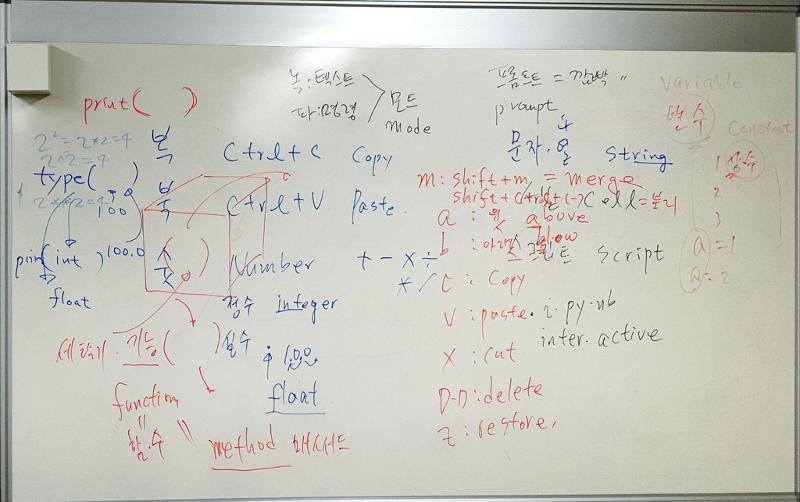 print( )
녹:텍스트
파:명령
모드
mode
프롬프트 = 깜빡 "
prompt
문자·열
string
variable
변수
Constant
상수
1
2
3
a=1
a=2
2²=2*2=4
2^2=4
2**2=4
type( )
100
100.0
print(int )
float
복
Ctrl+C Copy
붙
Ctrl+V Paste.
숫
Number
+ - × ÷
* /
정수 integer
실수
float
m: shift+m = merge
shift+Ctrl+(-) Cell=분리
a : 위 above
b : 아래 below
스크립트 script
C : Copy
V : paste.
i.py.nb
inter.active
X : cut
D-D : delete
Z : restore,
세탁기.기능( )
function
=
함·수
"
method 메서드